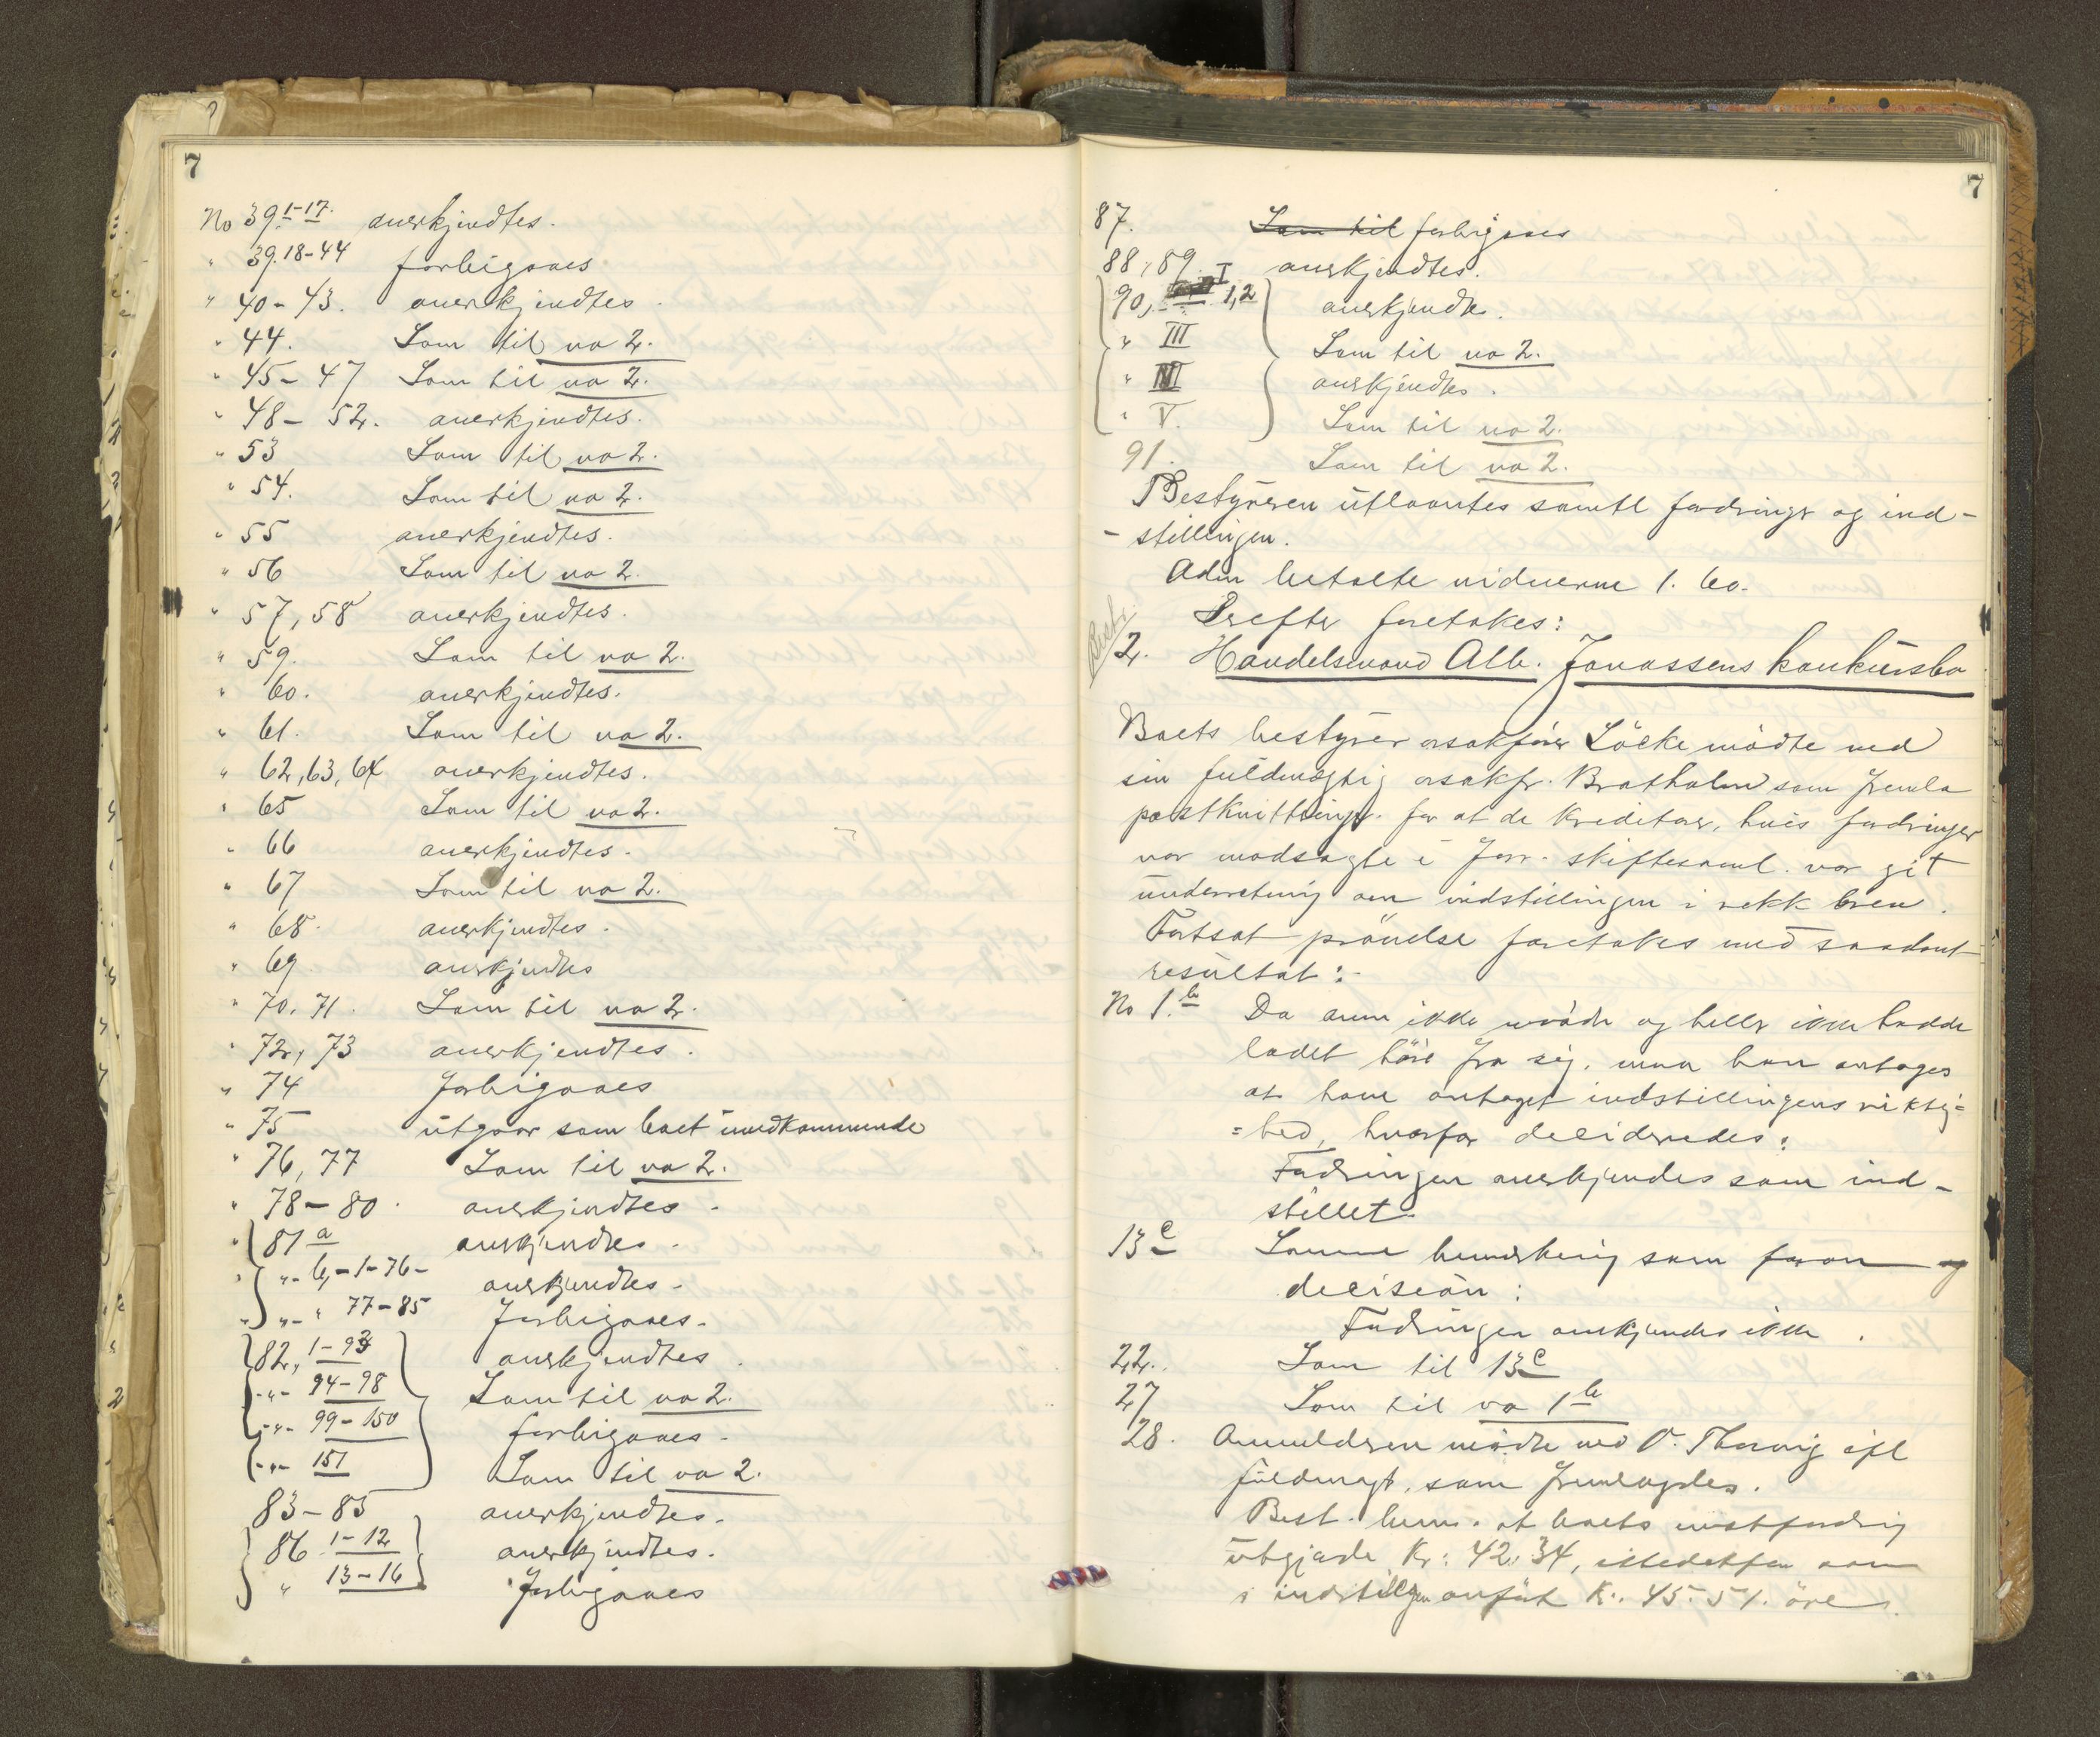 7
No 39 1-17. anerkjendtes.
" 39.18-44 forbigaaes.
" 40-43. anerkjendtes.
" 44. Som til no 2.
" 45-47 Som til no 2.
" 48-52. anerkjendtes.
" 53 Som til no 2.
" 54. Som til no 2.
" 55 anerkjendtes.
" 56 Som til no 2.
" 57, 58 anerkjendtes.
" 59. Som til no 2.
" 60. anerkjendtes.
" 61. Som til no 2.
" 62, 63, 64 anerkjendtes.
" 65 Som til no 2.
" 66 anerkjendtes.
" 67 Som til no 2.
" 68. anerkjendtes.
" 69. anerkjendtes
" 70. 71. Som til no 2.
" 72, 73 anerkjendtes.
" 74 forbigaaes
" 75 utgaar som boet uvedkommende
" 76, 77 Som til no 2.
" 78-80. anerkjendtes.
" 81 a anerkjendtes.
" "- b,-1-76- anerkjendtes.
" "- " 77-85 forbigaaes.
82, 1-93 anerkjendtes.
-"- 94-98 Som til no 2.
-"- 99-150 forbigaaes.
-"- 151 Som til no 2.
83-85 anerkjendtes.
86 1-12 anerkjendtes.
" 13-16 forbigaaes
7
87. Som til forbigaaes
88, 89. anerkjendtes.
90, I 1,2 anerkjendtes.
" III Som til no 2.
" anerkjendtes.
" V. Som til no 2.
91. Som til no 2.
Bestyreren utlaantes samtl fordringer og ind-
-stillingen.
Adm betalte vidnerne 1. 60.
Derefter foretokes:
2. Handelsmand Alb. Jonassens konkursbo
Boets bestyrer osakfører Löcke mödte ved
sin fuldmægtig osakfr. Bratholm som fremla
postkvitteringer for at de kreditorer, hvis fordringer
var modsagte i forr. skiftesaml. var git
underretning om indstillingen i rekk brev.
Fortsat prövelse foretokes med saadant
resultat:-
No 1.b Da anm ikke mödte og heller ikke hadde
ladet höre fra sig, maa han antages
at have antaget indstillingens riktig-
=hed, hvorfor decideredes:
Fordringen anerkjendes som ind-
stillet.
13 c Samme bemerkning som foran og
decision:
Fordringen anerkjendes ikke.
22. Som til 13 c
27 Som til no 1 b
28. Anmelderen mödte ved O. Thorvig ifl
fuldmagt, som fremlagdes.
Best. bem. at boets motfordring
utgjorde Kr: 42,34, istedetfor som
i indstillgen anfört Kr. 45.51. öre.